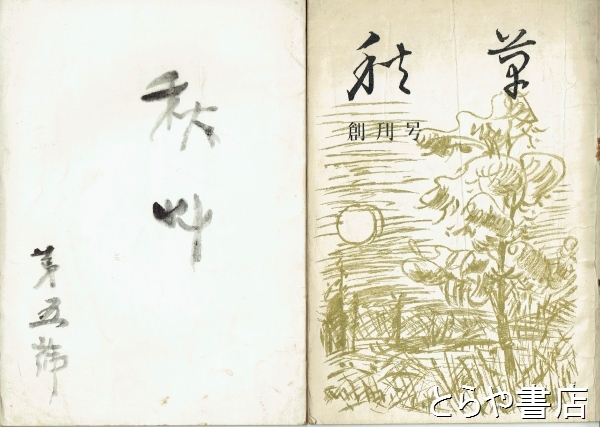 秋艸
第五號
秋草
創刊号
とらや書店